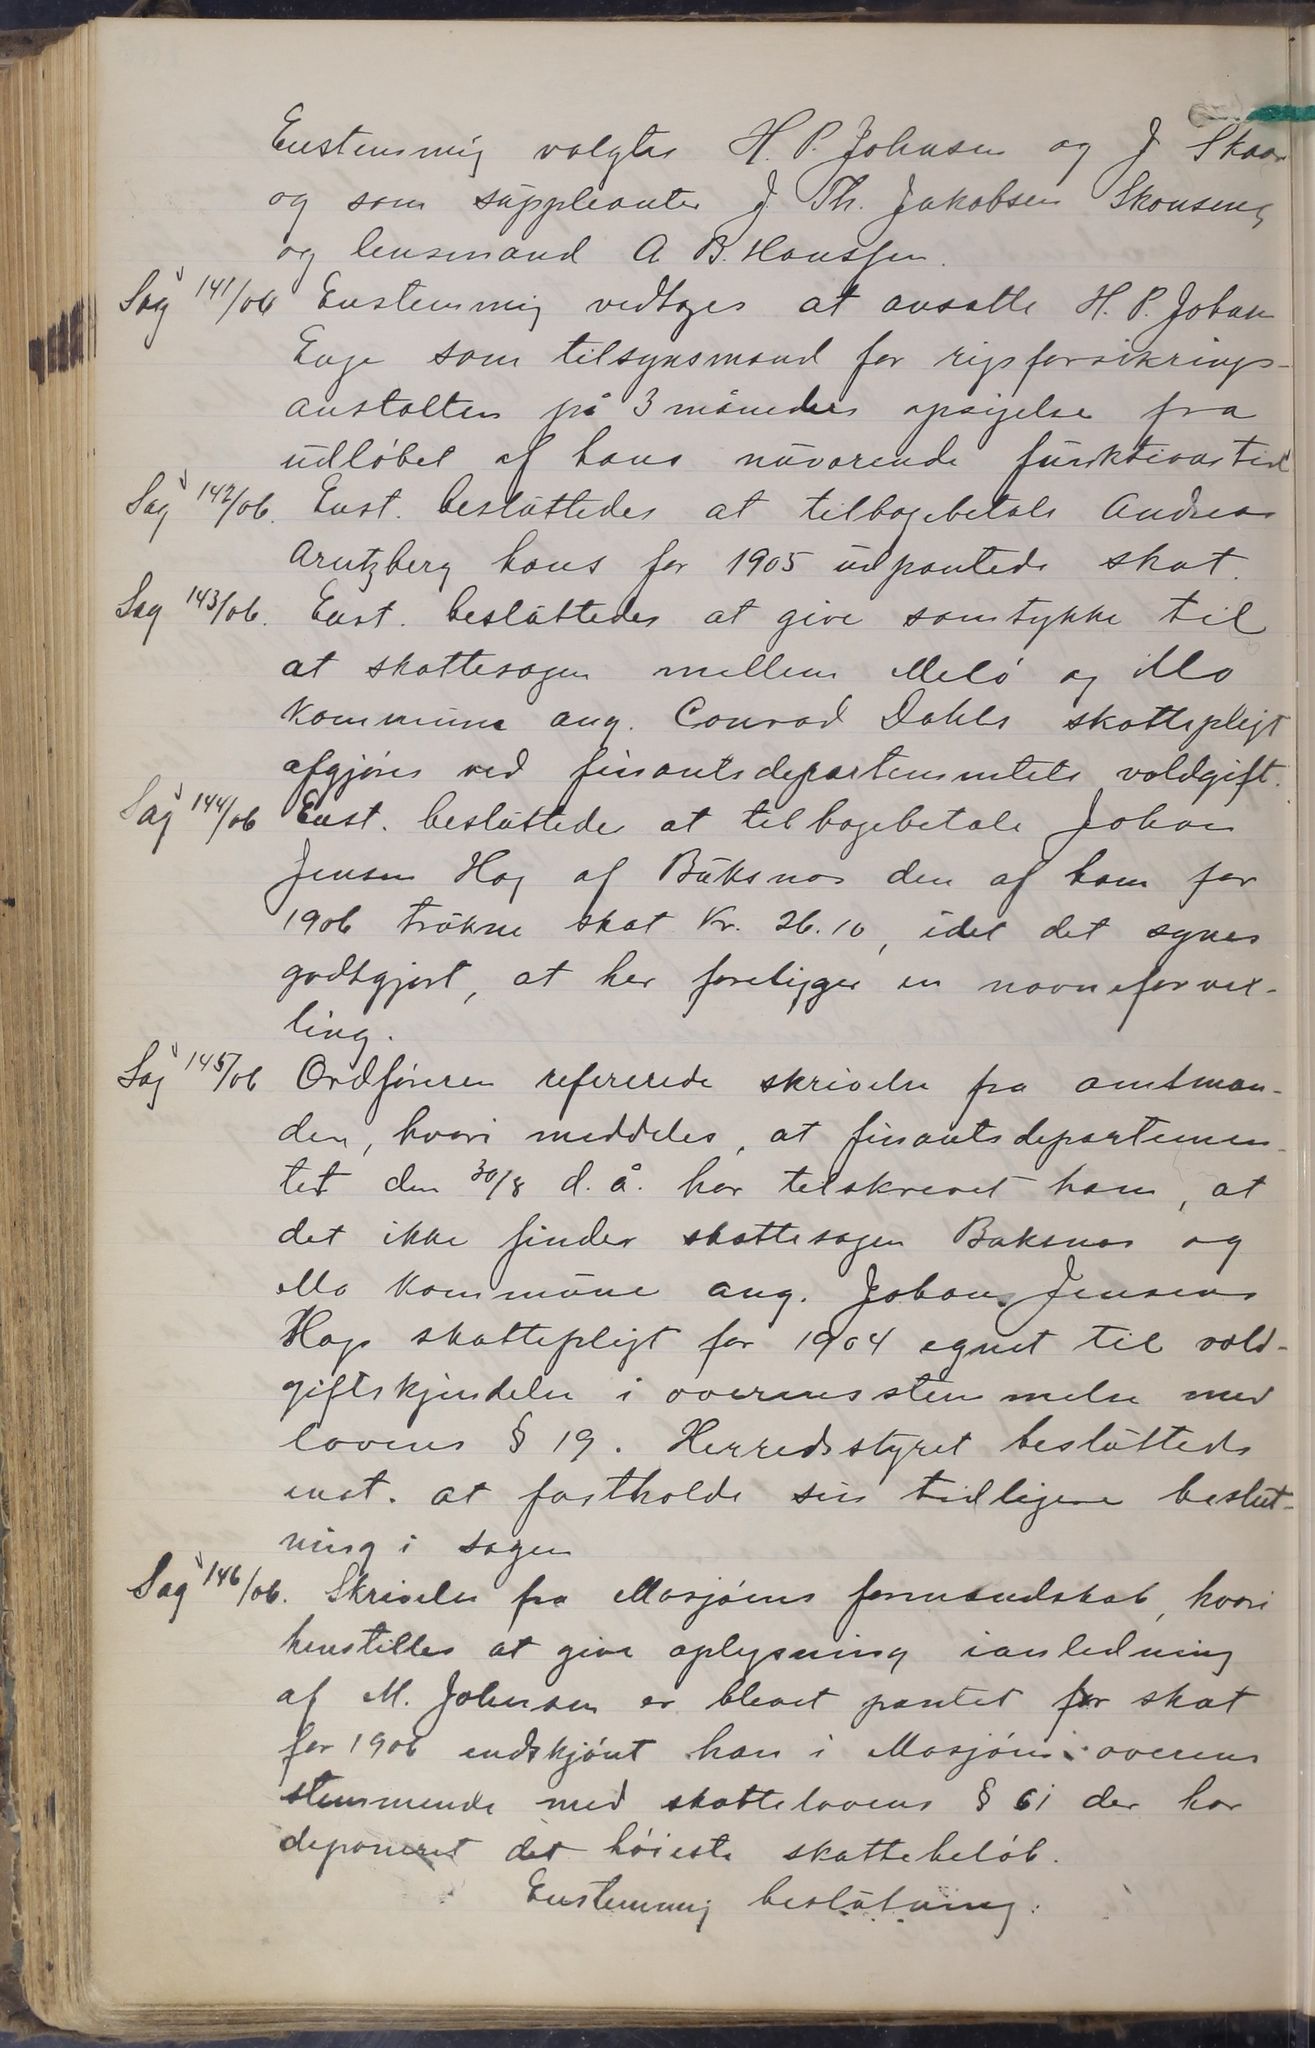 Enstemmig valgtes H. P. Johnsen og J Skaar
og som suppleanter J Th. Jakobsen Skonseng
og lensmand A B. Hanssen.
Sag 141/06 Enstemmig vedtages at ansatte H. P. Johan
Enge som tilsynsmand for rigsforsikrings-
anstalten på 3 måneders opsigelse fra
udløbet af hans nuværende funktionstid
Sag 142/06. Enst. besluttedes at tilbagebetale Andreas
Arntzberg hans for 1905 udpantede skat.
Sag 143/06. Enst. besluttedes at give samtykke til
at skattesagen mellem Melø og Mo
kommune ang. Conrad Dahls skattepligt
afgjøres ved finantsdepartementets voldgift.
Sag 144/06 Enst. besluttedes at tilbagebetale Johan
Jensen Hag af Buksnes den af ham for
1906 trukne skat Kr. 26.10, idet det synes
godtgjort, at her foreligger en navneforvex-
ling.
Sag 145/06 Ordføreren refererede skrivelse fra amtman-
den, hvori meddeles, at finantsdepartemen-
tet den 30/8 d. å. har tilskrevet ham, at
det ikke finder skattesagen Buksnes og
Mo kommune ang. Johan Jensens
Hags skattepligt for 1904 egnet til vold-
giftskjendelse i overensstemmelse med
lovens § 19. Herredsstyret besluttede
enst. at fastholde sin tidligere beslut-
ning i sagen
Sag 146/06. Skrivelse fra Mosjøens formandskab, hvori
henstilles at give oplysning ianledning
af M. Johnsen er blevet pantet for skat
for 1906 endskjønt han i Mosjøen i overens
stemmende med skattelovens § 61 der har
deponeret det høieste skattebeløb.
Enstemmig beslutning: